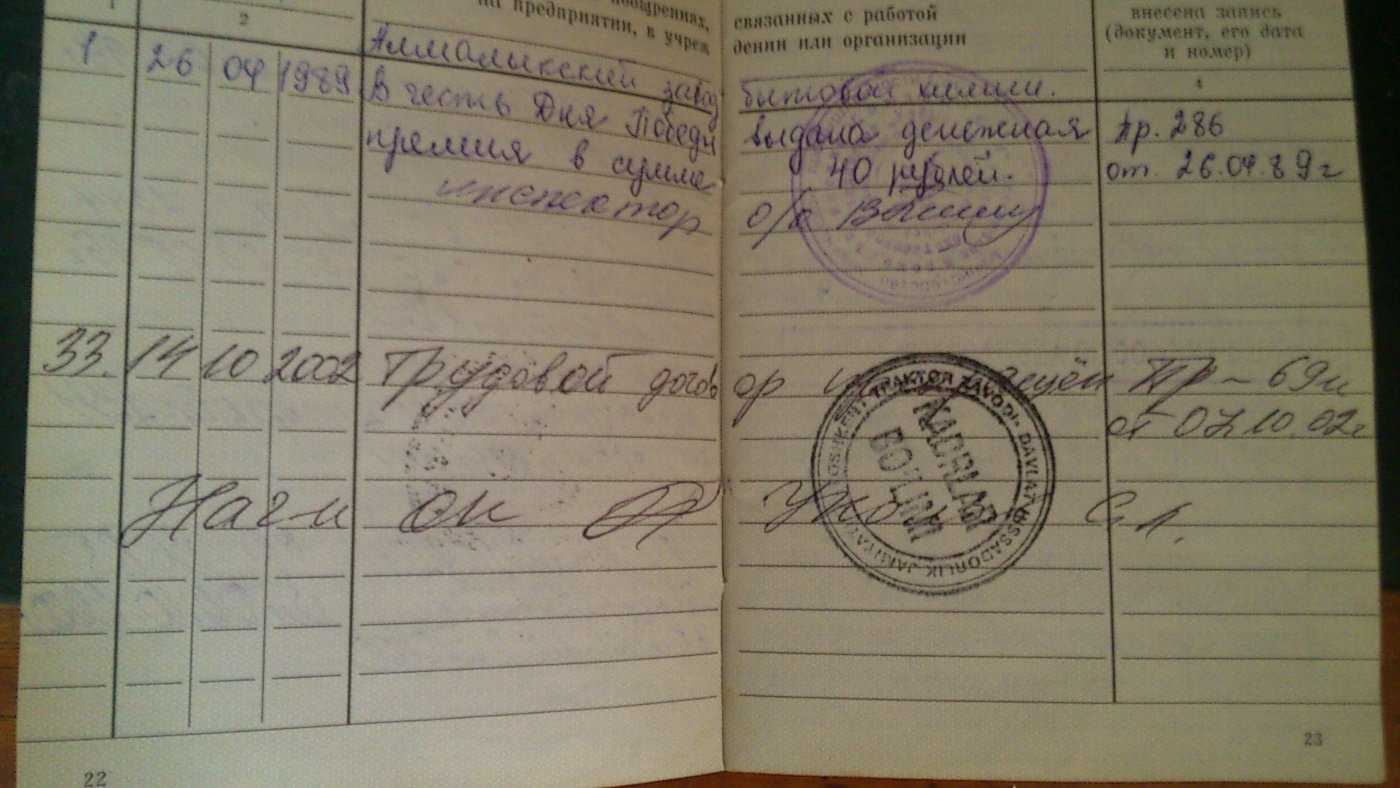 поощрениях, связанных с работой
на предприятии, в учреж дении или организации
внесена запись
(документ, его дата
и номер)
2 4
Алмалыкский завод бытовой химии.
1 26 04 1989 В честь Дня Победы выдана денежная пр. 286
премия в сумме 40 рублей. от. 26.04.89г
инспектор о/к
33. 14 10 2002 Трудовой догов ор Пр-69
от 07.10.02г
TRAKTOR ZAVODI DAVLAT HISSADORLIK JAMIYATI
KADRLAR
BO'LIMI
22 23